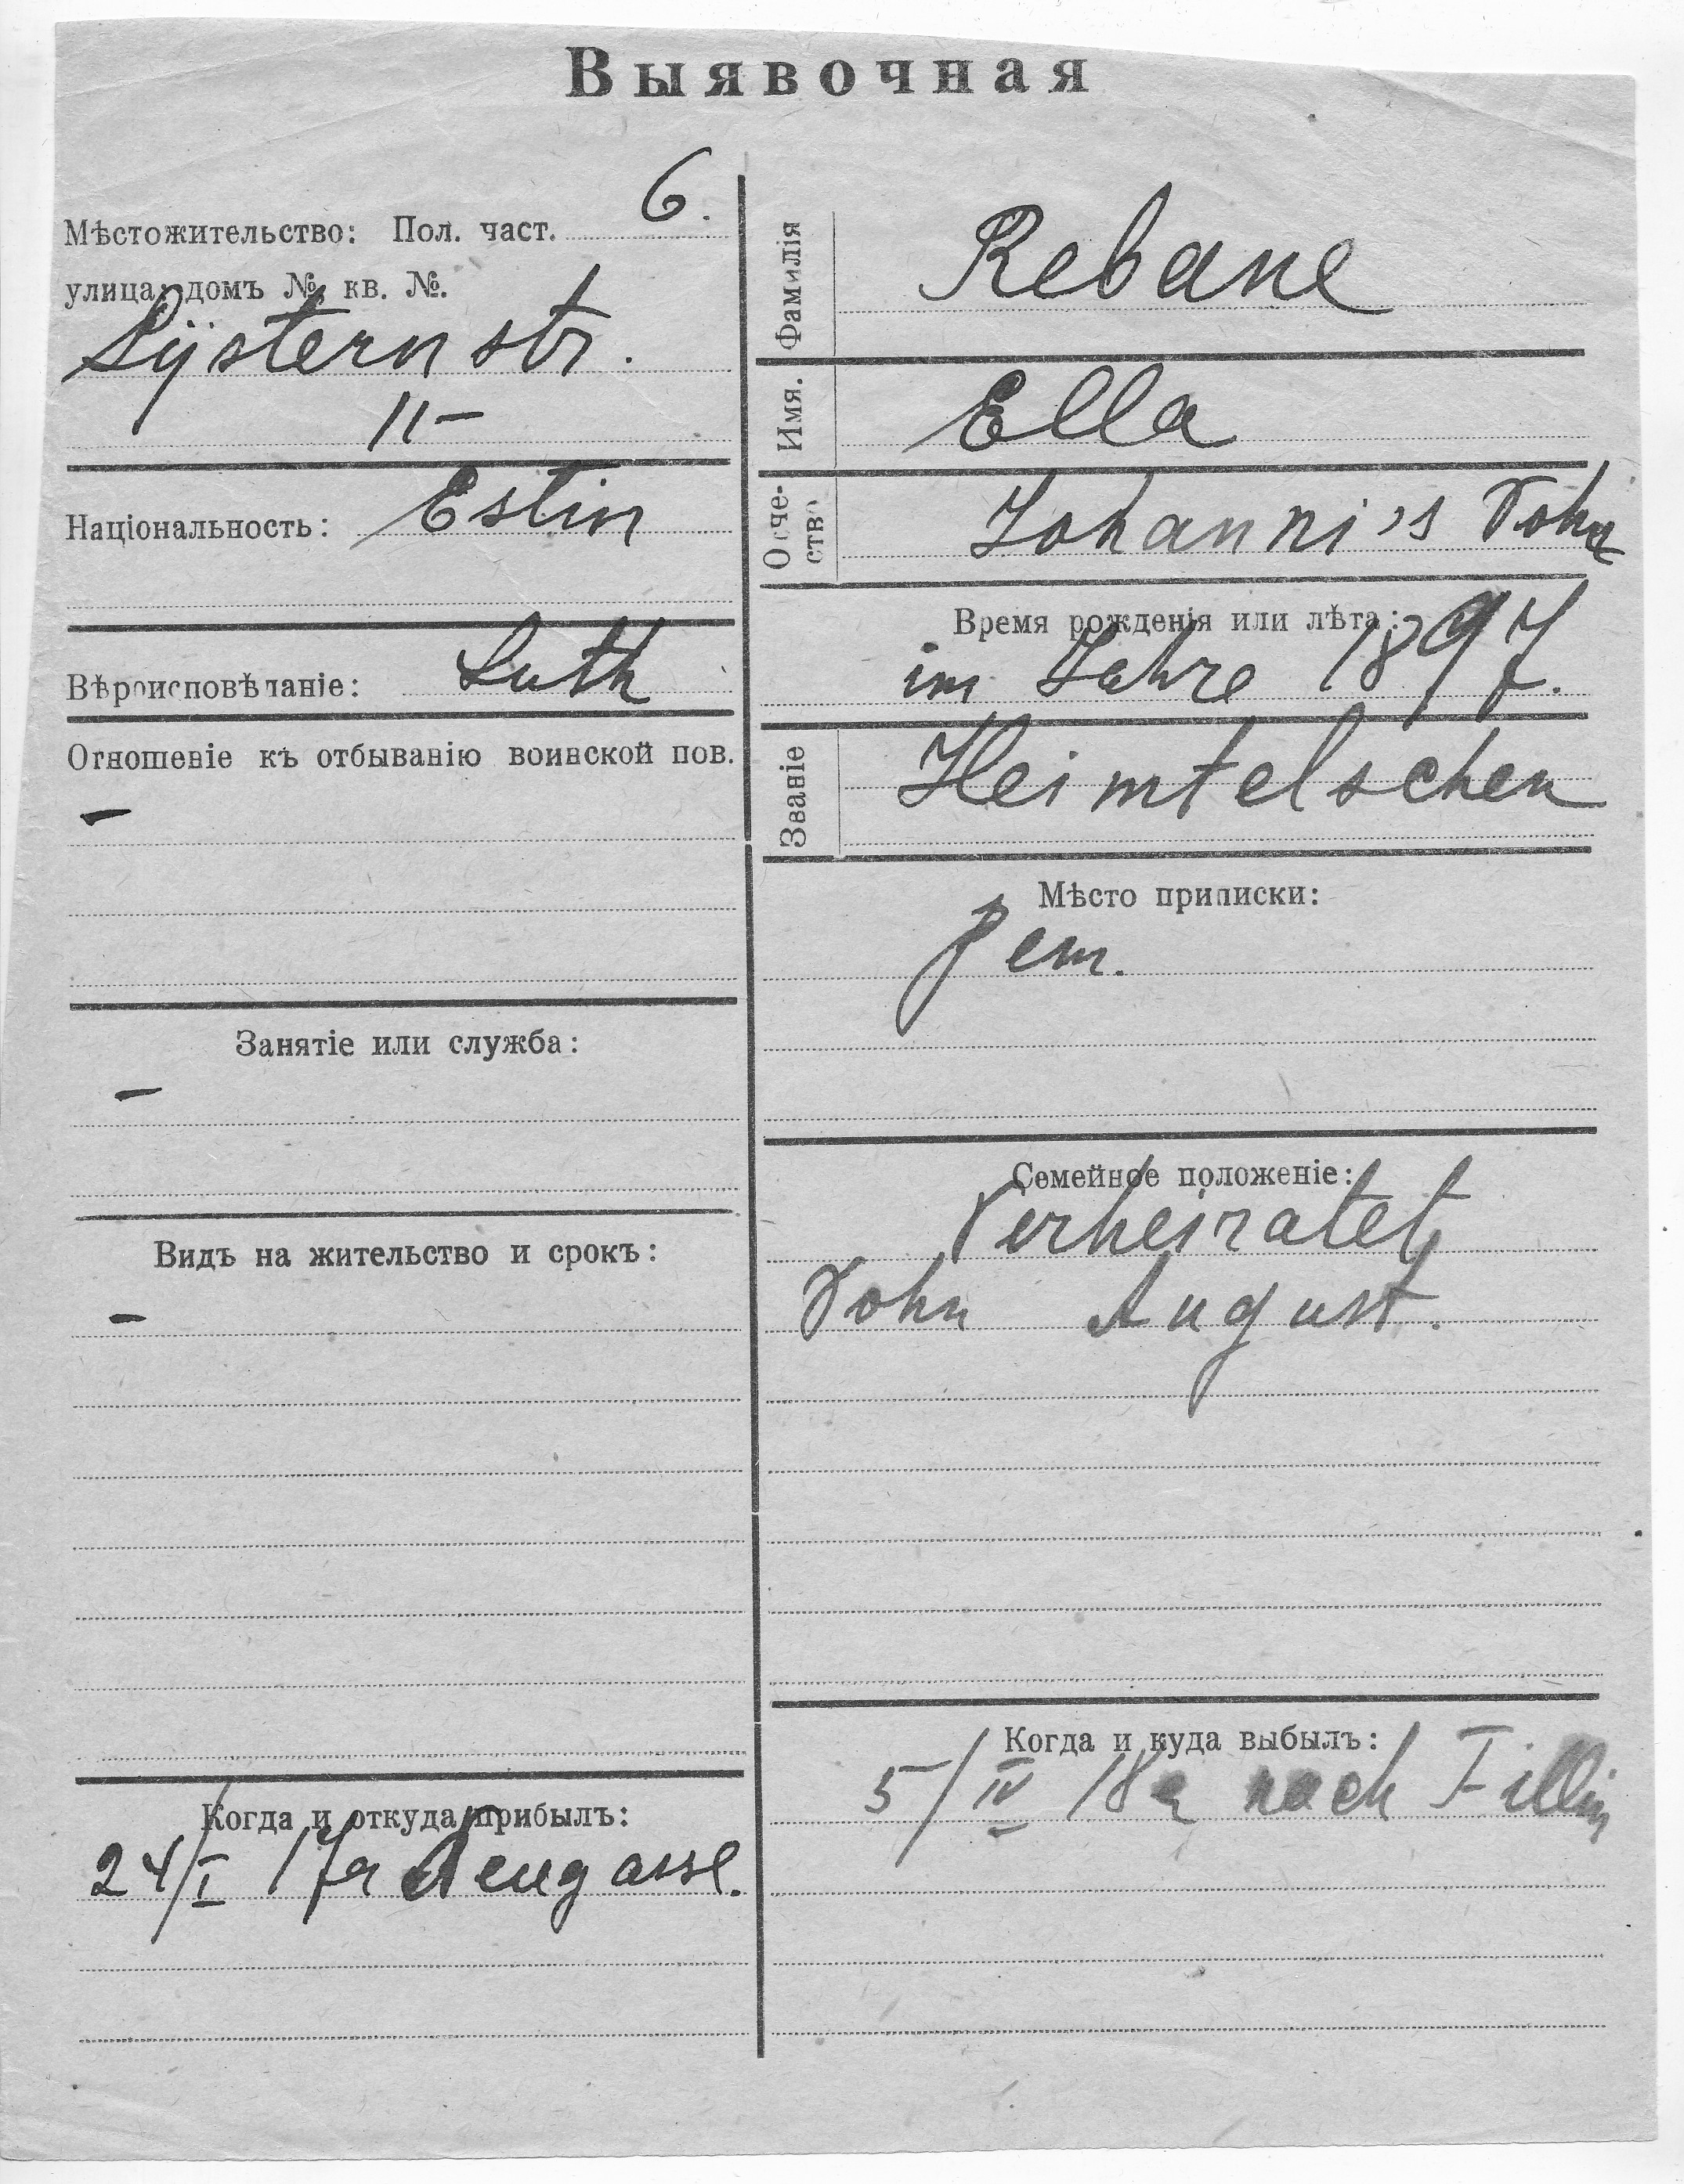 Выявочная
Мѣстожительство: Пол. част. 6.
улица, домъ №, кв. №.
Lijstern str.
11-
Національность: Estin
Вѣроисповѣданіе: Luth
Отношеніе къ отбыванію воинской пов.
–
Занятіе или служба:
–
Видъ на жительство и срокъ:
–
Когда и откуда прибылъ:
24/I 17a Neugasse.
Фамилія Rebane
Имя. Ella
Отчество Johanni's Tohn
Время рожденія или лѣта:
im Jahre 1897.
Званіе Heimtelschen
Мѣсто приписки:
Pem.
Семейное положеніе:
Verheiratet
Tohn August.
Когда и куда выбылъ:
5/IV 18a nach Fillin